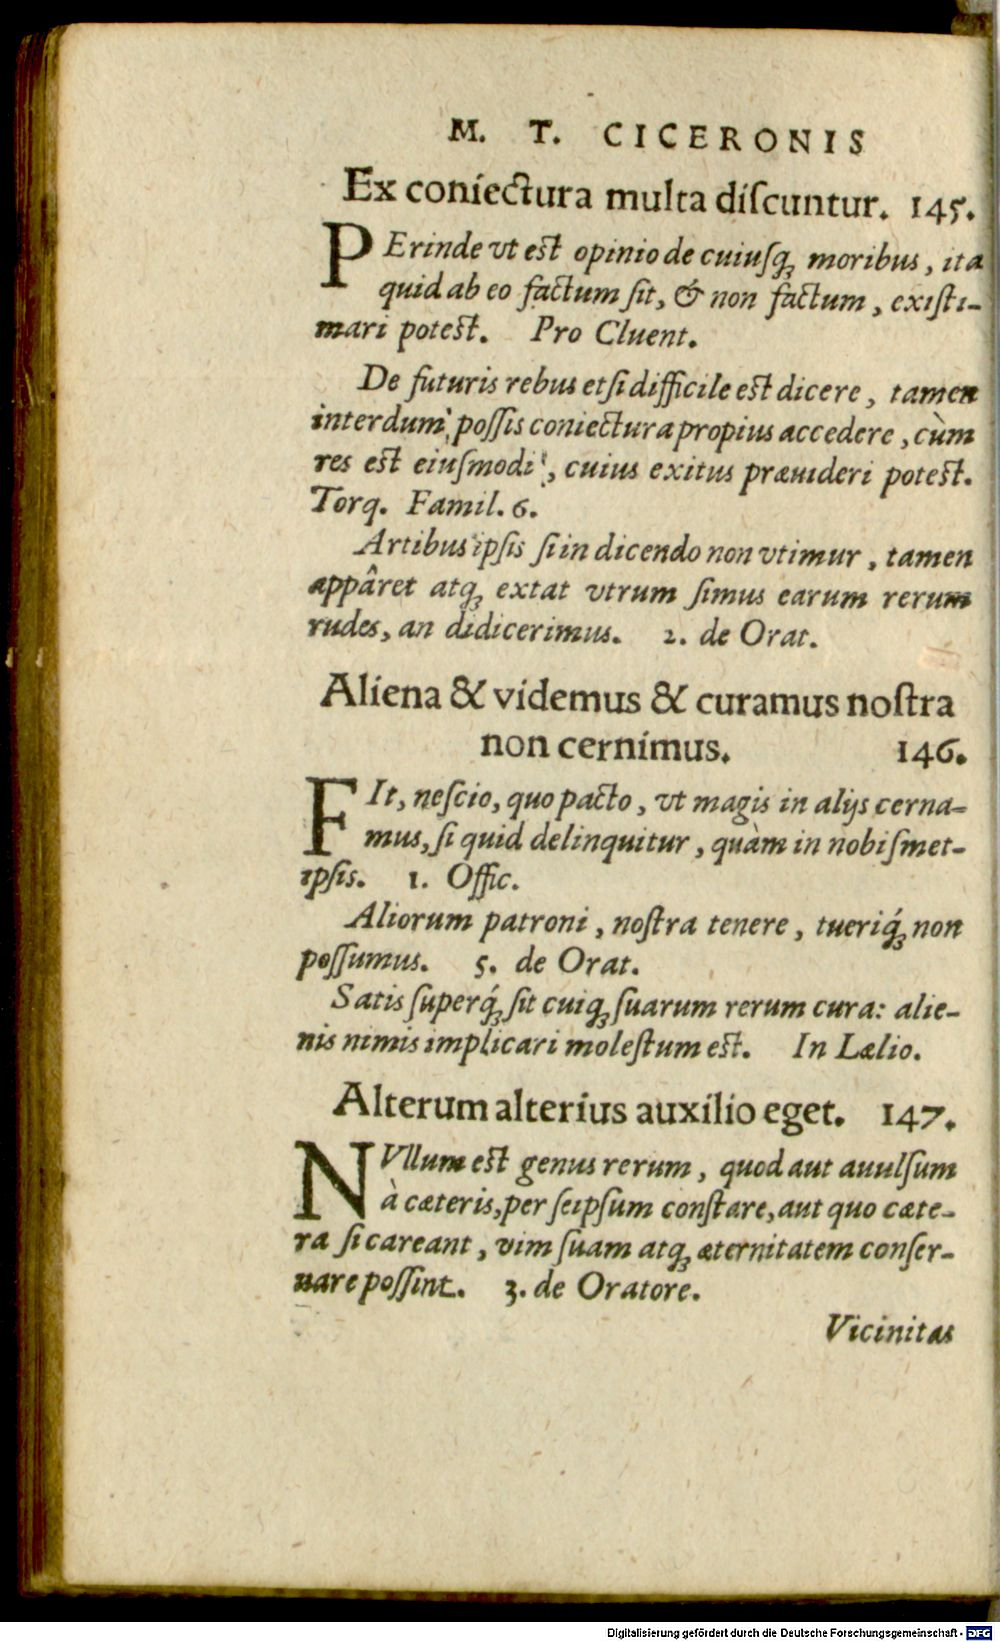 M. T. CICERONIS
Ex coniectura multa diſcuntur. 145.
PErinde vt est opinio de cuiuſq; moribus, ita
quid ab eo factum ſit, & non factum, exiſti-
mari potest. Pro Cluent.
De futuris rebus etſi difficile est dicere, tamen
interdum poſſis coniectura propius accedere, cùm
res est eiuſmodi, cuius exitus præuideri potest.
Torq. Famil. 6.
Artibus ipſis ſi in dicendo non vtimur, tamen
appâret atq; extat vtrum ſimus earum rerum
rudes, an didicerimus. 2. de Orat.
Aliena & videmus & curamus noſtra
non cernimus. 146.
FIt, neſcio, quo pacto, vt magis in alijs cerna-
mus, ſi quid delinquitur, quàm in nobiſmet-
ipſis. 1. Offic.
Aliorum patroni, noſtra tenere, tueriq́; non
poſſumus. 5. de Orat.
Satis ſuperq́; ſit cuiq; ſuarum rerum cura: alie-
nis nimis implicari moleſtum est. In Lælio.
Alterum alterius auxilio eget. 147.
NVllum est genus rerum, quod aut auulſum
à cæteris, per ſeipſum conſtare, aut quo cæte-
ra ſi careant, vim ſuam atq; æternitatem conſer-
uare poſſint. 3. de Oratore.
Vicinitas
Digitalisierung gefördert durch die Deutsche Forschungsgemeinschaft - DFG